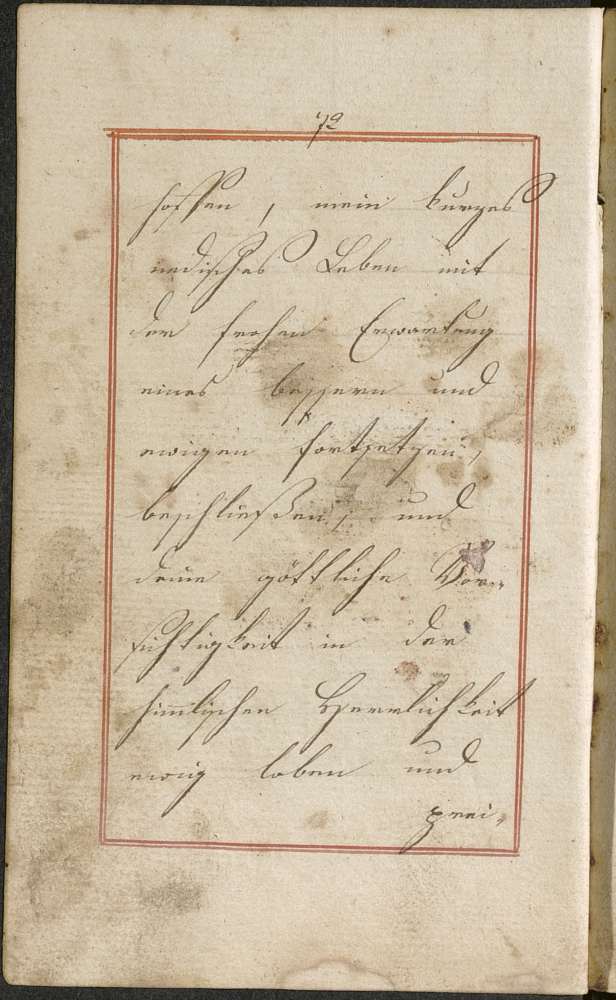 72
hoffen, mein kurzes
irdisches Leben mit
der frohen Erwartung
eines bessern und
ewigen fortsetzen,
beschließen, und
deine göttliche Vor-
sichtigkeit in der
him̅lischen Herrlichkeit
ewig loben und
prei-